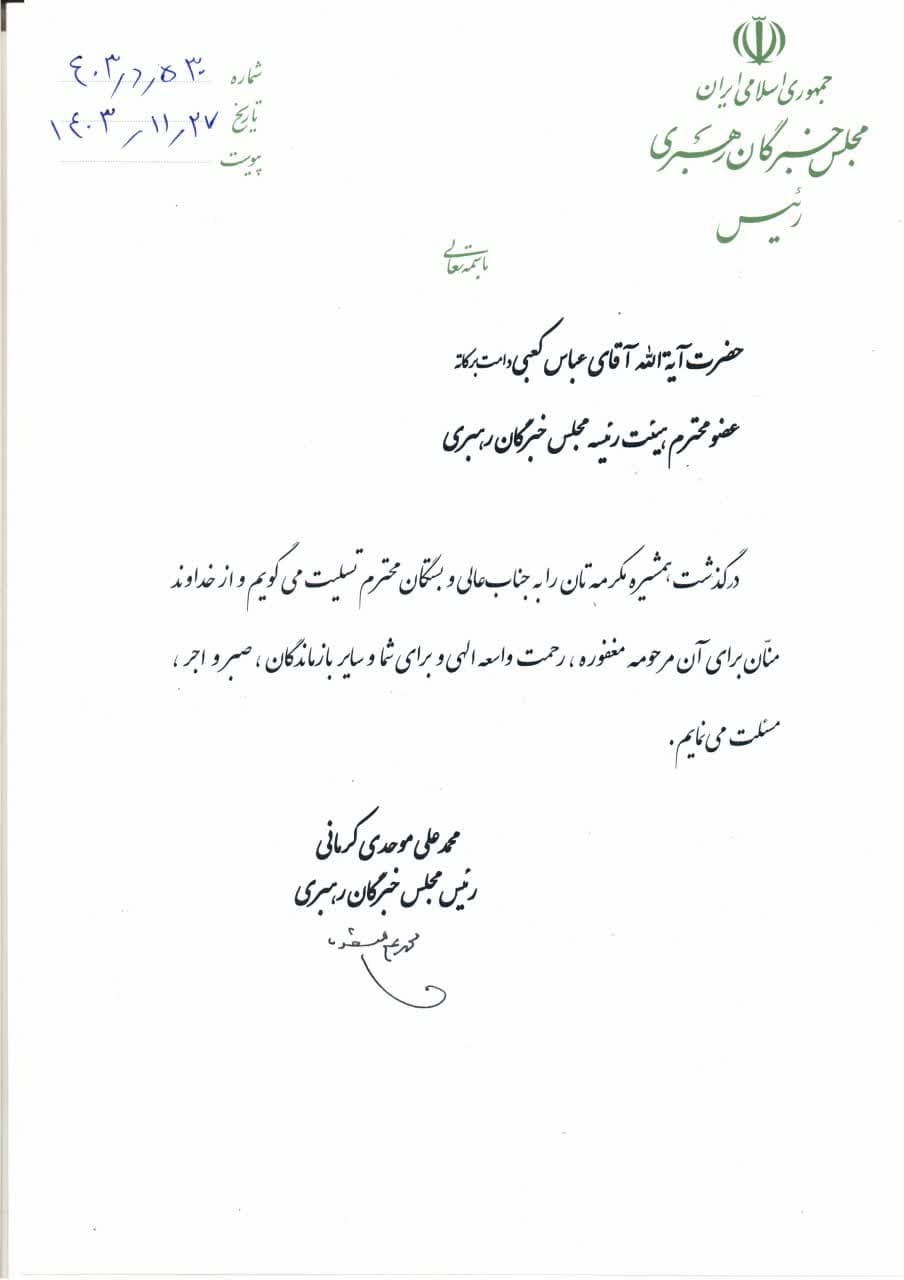 جمهوری اسلامی ایران
مجلس خبرگان رهبری
رئیس
شماره
تاریخ ۱۴۰۳/۱۱/۲۷
پیوست
باسمه تعالی
حضرت آیة الله آقای عباس کعبی دامت برکاته
عضو محترم هیئت رئیسه مجلس خبرگان رهبری
درگذشت همشیره مکرمه تان را به جناب عالی و بستگان محترم تسلیت می گویم و از خداوند
منّان برای آن مرحومه مغفوره ، رحمت واسعه الهی و برای شما و سایر بازماندگان ، صبر و اجر ،
مسئلت می نمایم .
محمد علی موحدی کرمانی
رئیس مجلس خبرگان رهبری